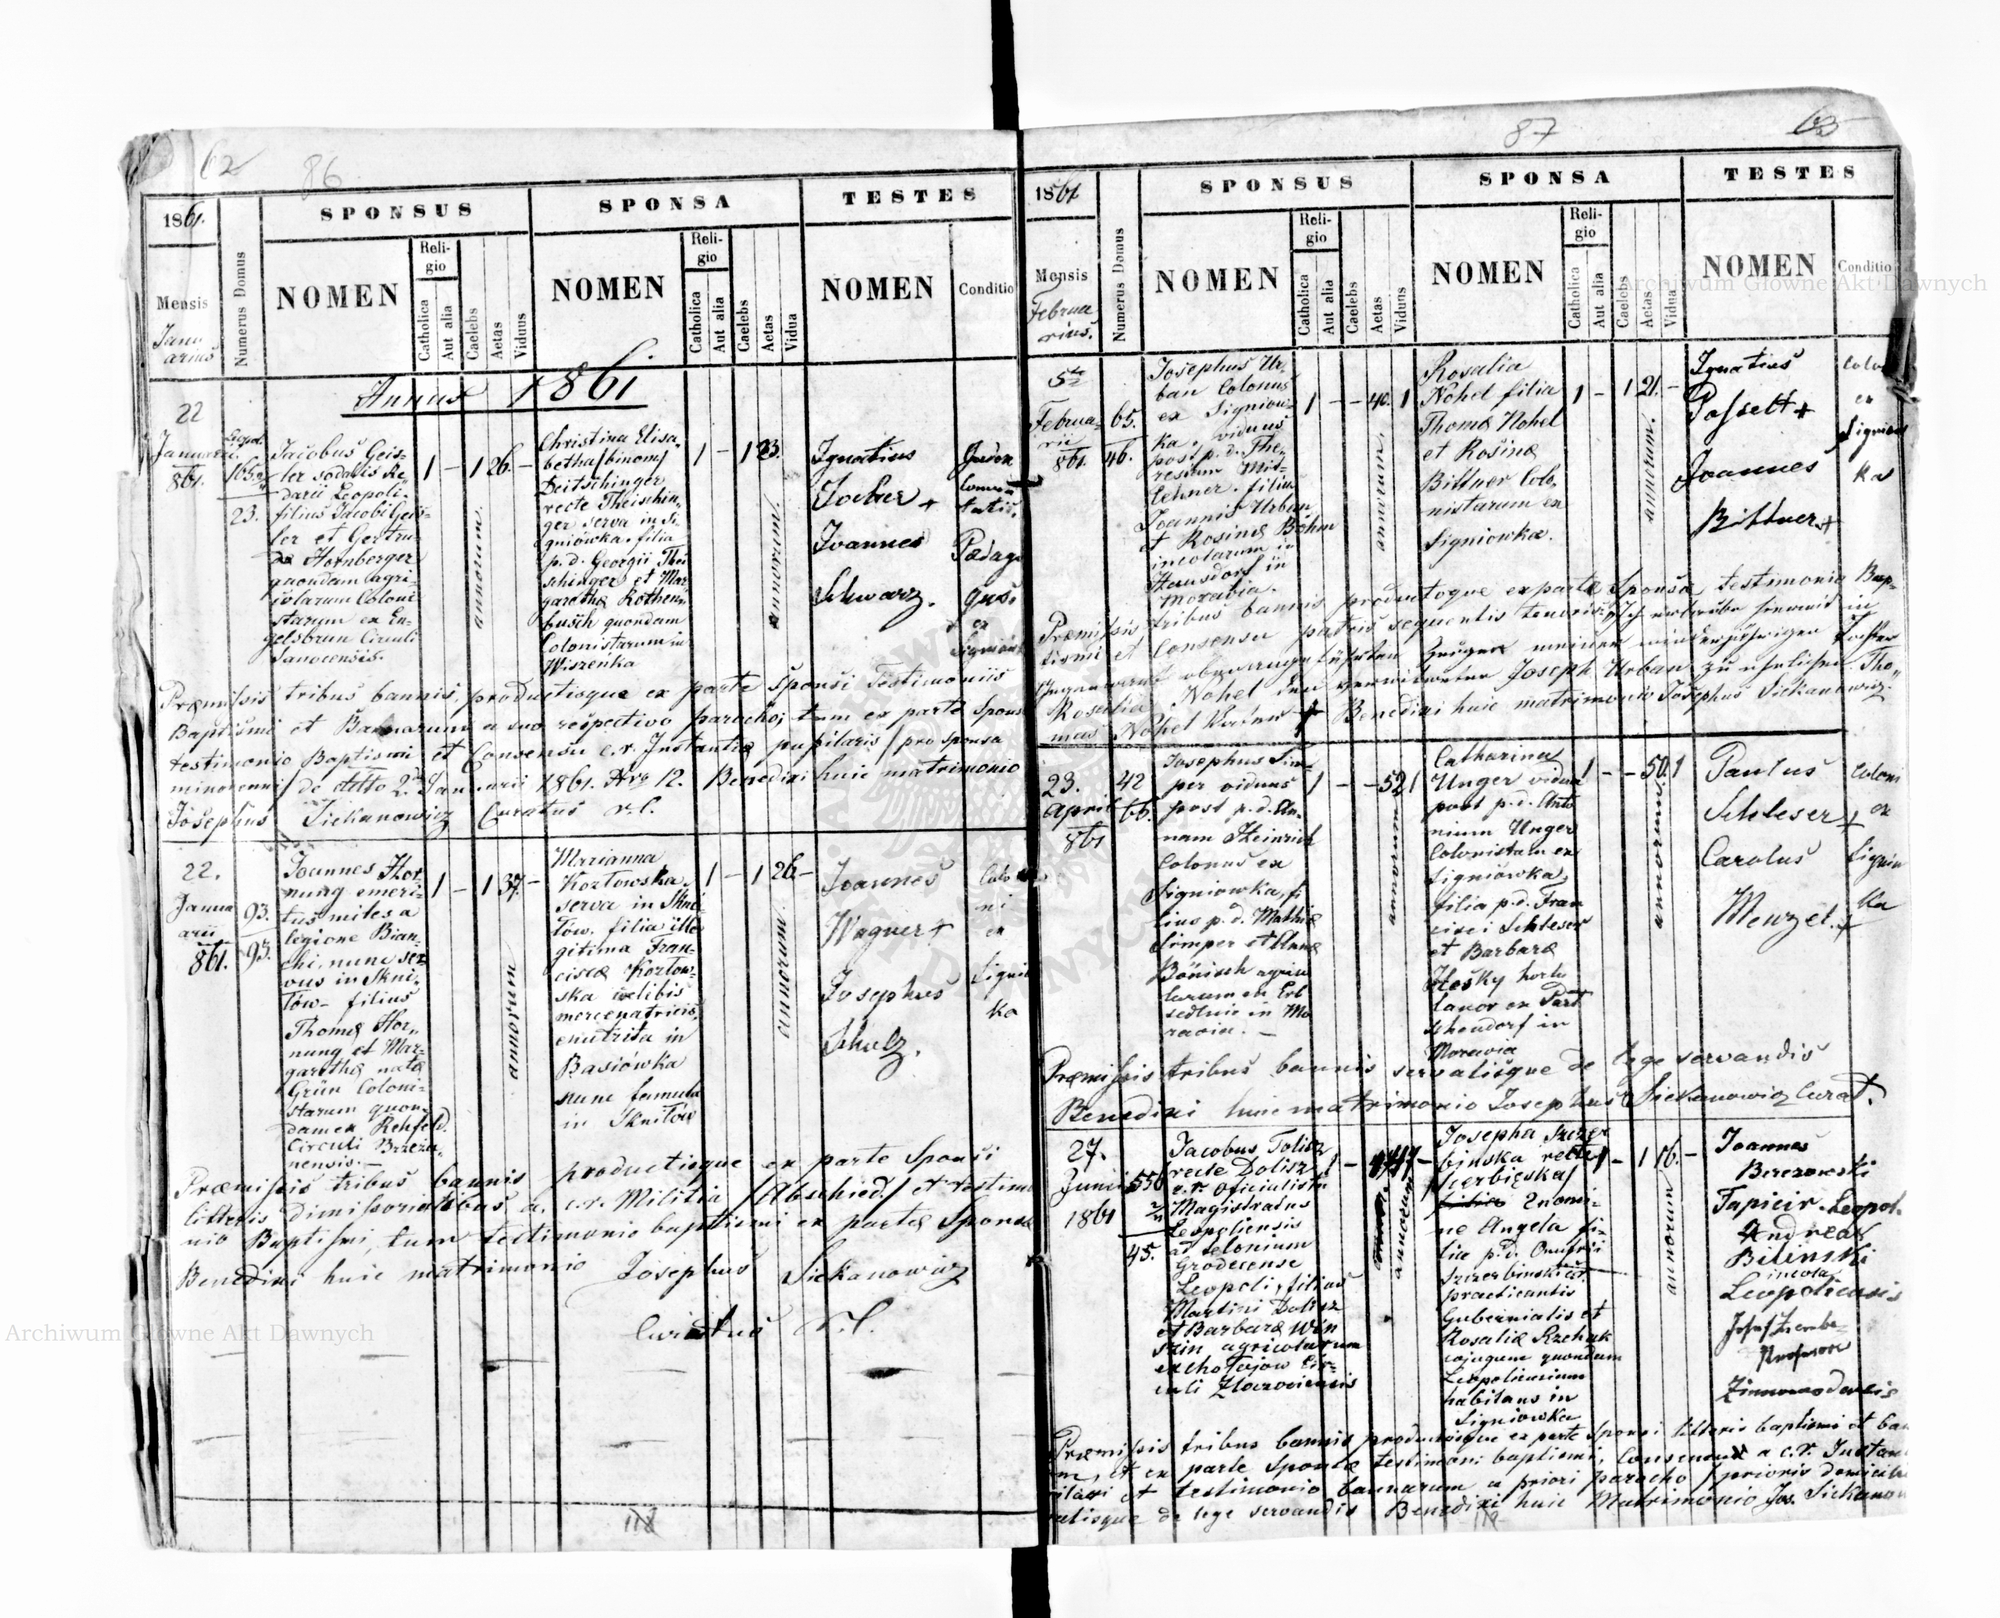 62
86
1861.
Mensis
Janu
arius
Numerus Domus
SPONSUS
NOMEN
Reli-
gio
Catholica
Aut alia
Caelebs
Aetas
Viduus
SPONSA
NOMEN
Reli-
gio
Catholica
Aut alia
Caelebs
Aetas
Vidua
TESTES
NOMEN
Conditio
Annus 1861
22
Januarii
861.
23.
Jacobus Geis-
ler sodalis Re-
darii Leopoli-
filius Jacobi Geis-
ler et Gertru-
da Hornberger
quondam agri-
colarum Coloni
starum ex En-
gelsbrun Circuli
Sanocensis.
1 - 1 26. -
annorum.
Christina Elisa-
betha /binom/
Deitschinger
recte Theischin-
ger serva in Si-
gniowka. filia
p. d. Georgii Thei
schinger et Mar
garetha Rothen-
busch quondam
Colonistarum in
Wiszenka
1 - 1 23.
annorum.
Ignatius
+
Joannes
Schwarz.
Pædago
gus.
ex
Præmissis tribus bannis, productisque ex parte sponsi Testimoniis
Baptismi et Bannorum a suo respectivo parocho, tum ex parte sponsæ
testimonio Baptismi et Consensu c. r. Instantiæ pupilaris / pro sponsa
minorenni / de dtto 2. Januarii 1861. Nro 12. Benedixi huic matrimonio
Josephus Siekanowicz Curatus r. l.
22.
Janua
arii
861.
93.
93.
Joannes Hor-
nung emeri-
tus miles a
legione Bian-
chi, nunc ser-
vus in Skni-
łow - filius
Thomæ Hor-
nung et Mar-
garethæ natæ
Grün Coloni-
starum quon-
dam ex Rehfeld.
Circuli Brzeża-
nensis. -
1 - 1 37. -
annorum
Marianna
Kozłowska.
serva in Skni-
łow. filia ille
gitima Fran-
ciscæ Kozłow-
ska cælibis
mercenatricis
enutrita in
Basiówka
nunc famula
in Skniłów
1 - 1 26. -
annorum.
Joannes
Wagner +
Josephus
Scholz.
Colo
ni
ex
Signió
ka
Præmissis tribus bannis productisque ex parte Sponsi
litteris dimissorialibus a. c. r. Militia /Abschied/ et testimo
nio Baptismi, tum testimonio baptismi ex parte Sponsæ
Benedixi huic matrimonio Josephus Siekanowicz
Curatus r. l.
118
87
63
1861
Mensis
Februa
rius.
Numerus Domus
SPONSUS
NOMEN
Reli-
gio
Catholica
Aut alia
Caelebs
Aetas
Viduus
SPONSA
NOMEN
Reli-
gio
Catholica
Aut alia
Caelebs
Aetas
Vidua
TESTES
NOMEN
Conditio
5
Februa-
rii
861.
65.
46.
Josephus Ur-
ban Colonus
ex Signiow-
ka, viduus
post p. d. The-
resiam Mit-
lehner. filius
Joannis Urban
et Rosinæ Böhm
incolarum in
Hausdorf in
Moravia.
1 - - 40. 1
annorum.
Rosalia
Nohel filia
Thomæ Nohel
et Rosinæ
Bittner Colo-
nistarum ex
Signiowka.
1 - 1 21. -
annorum.
Ignatius
Posselt +
Joannes
Bittner. +
Colo
ex
Signiow
ka
Præmissis tribus bannis productoque ex parte Sponsæ testimonio Bap-
tismi et Consensu patris sequentis tenoris: Ich erlaube hiemit in
Gegenwart der Zeugen meiner minderjährigen Tochter
Rosalia Nohel den verwitweten Joseph Urban zu ehelichen. Tho-
mas Nohel Vater + Benedixi huic matrimonio Josephus Siekanowicz.
23.
April
861
42
66.
Josephus Sim-
per viduus
post p. d. An-
nam Heinrich
Colonus ex
Signiowka, fi
lius p. d. Mathiæ
Simper et Annæ
Bönisch agrico
larum in Mo
ravia. -
1 - - 52 1
annorum
Catharina
Unger vidua
post p. d. Anto
nium Unger
Colonistam ex
Signiówka,
filia p. d. Fran
cisci Schleser
et Barbaræ
hortu
lanor ex Part
schendorf in
Moravia
1 - - 50. 1
annorum.
Paulus
Schleser +
Carolus
Menzel. +
Coloni
ex
Signiow
ka
Præmissis tribus bannis servatisque de lege servandis
Benedixi huic matrimonio Josephus Siekanowicz Curat.
27.
Junii
1861
556
45.
Jacobus Tolisz
recte Dolisz
c. r. Oficialista
Magistratus
Leopoliensis
ad telonium
Grodecense
Leopoli, filius
Martini Dolisz
et Barbaræ Win
agricolarum
ex Chołojow Cir-
culi Zloczoviensis
annorum
Josepha Szczer
binska recte
Szczerbięska/
ne Angela fi-
lia p. d. Onufrii
Szczerbinski
practicantis
Gubernialis et
Rosaliæ Rzehak
conjugum quondam
Leopoliensium
habitans in
Signiowka
1 - 1 16. -
annorum
Joannes
Berezowski
Tapicir. Leopol.
Andreas
Bilinski
incola
Leopoliensis
Præmissis tribus bannis productisque ex parte Sponsi litteris baptismi et ban
et ex parte Sponsæ testimoni baptismi, consensus a c. r. Instan
et testimonio bannorum a priori parocho / prioris domicilii
de lege servandis Benedixi huic Matrimonio Jos. Siekanow
119
Archiwum Główne Akt Dawnych
Archiwum Główne Akt Dawnych